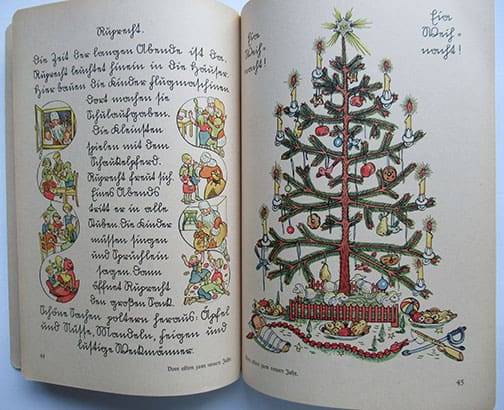 Ruprecht.
Die Zeit der langen Abende ist da.
Ruprecht leuchtet hinein in die Häuser.
Hier bauen die Kinder Flugmaschinen
dort machen sie
Schulaufgaben.
Die Kleinsten
spielen mit dem
Schaukelpferd.
Ruprecht freut sich.
Eines Abends
tritt er in alle
Stuben. Die Kinder
müssen singen
und Sprüchlein
sagen dann
öffnet Ruprecht
den großen Sack.
Schöne Sachen poltern heraus: Äpfel
und Nüsse, Mandeln, Feigen und
lustige Weckmänner.
44
Vom alten zum neuen Jahr.
Eia
Weih-
nacht!
Eia
Weih-
nacht!
Vom alten zum neuen Jahr.
45